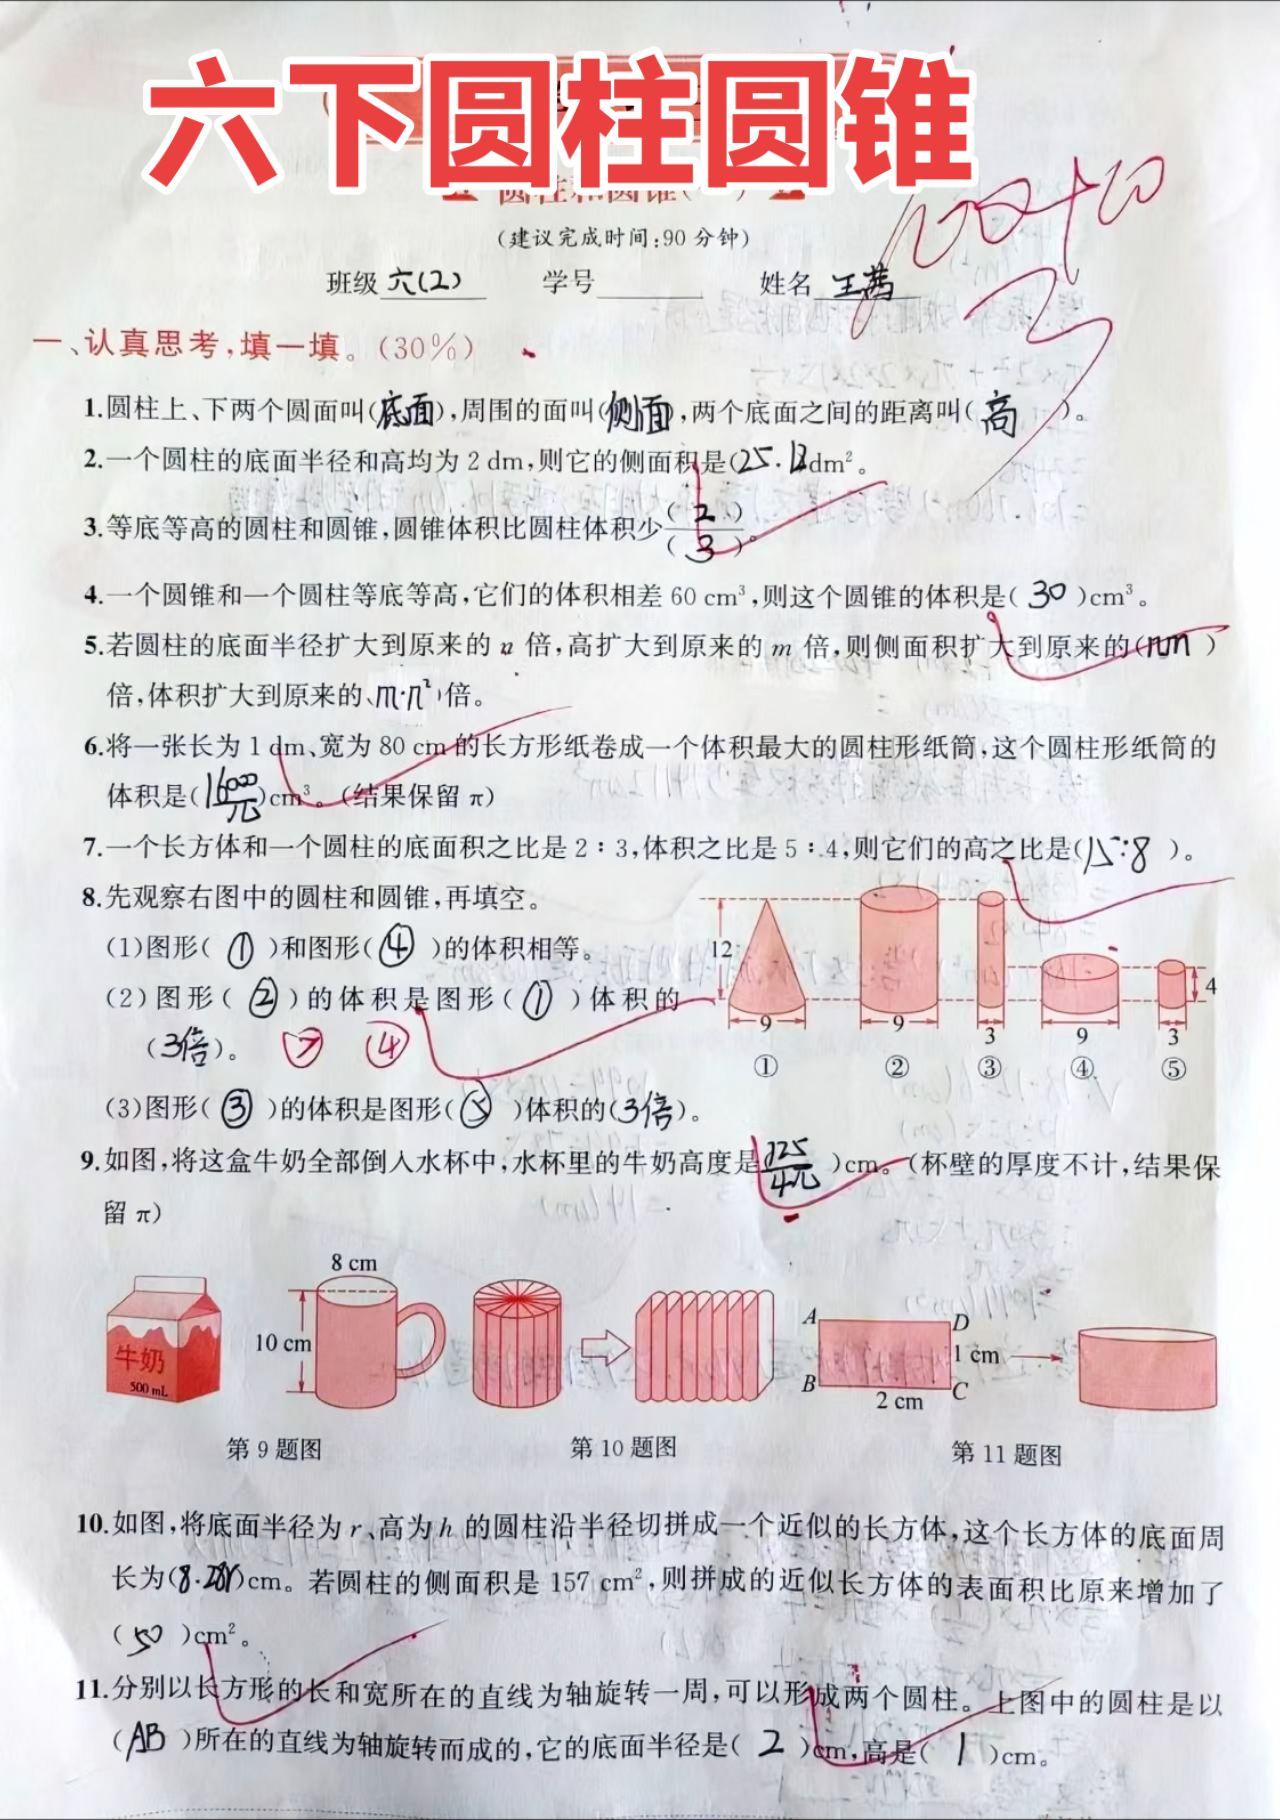 六下圆柱圆锥
圆柱和圆锥
(建议完成时间:90分钟)
班级 六(2) 学号 姓名 王茜
100+10
一、认真思考,填一填。(30%)
1.圆柱上、下两个圆面叫(底面),周围的面叫(侧面),两个底面之间的距离叫(高)。
2.一个圆柱的底面半径和高均为2 dm,则它的侧面积是(25.12)dm²。
3.等底等高的圆柱和圆锥,圆锥体积比圆柱体积少(2)/(3)。
4.一个圆锥和一个圆柱等底等高,它们的体积相差60 cm³,则这个圆锥的体积是(30)cm³。
5.若圆柱的底面半径扩大到原来的n倍,高扩大到原来的m倍,则侧面积扩大到原来的(nm)
倍,体积扩大到原来的(m·n²)倍。
6.将一张长为1 dm、宽为80 cm的长方形纸卷成一个体积最大的圆柱形纸筒,这个圆柱形纸筒的
体积是(16000/π)cm³。(结果保留π)
7.一个长方体和一个圆柱的底面积之比是2:3,体积之比是5:4,则它们的高之比是(15:8)。
8.先观察右图中的圆柱和圆锥,再填空。
(1)图形(①)和图形(④)的体积相等。
(2)图形(②)的体积是图形(①)体积的
(3倍)。 ② ④
(3)图形(③)的体积是图形(⑤)体积的(3倍)。
12 9 9 3 9 3 4
① ② ③ ④ ⑤
9.如图,将这盒牛奶全部倒入水杯中,水杯里的牛奶高度是(125/4π)cm。(杯壁的厚度不计,结果保
留π)
牛奶
500 mL
8 cm
10 cm
A D
1 cm
B C
2 cm
第9题图 第10题图 第11题图
10.如图,将底面半径为r、高为h的圆柱沿半径切拼成一个近似的长方体,这个长方体的底面周
长为(8.28r)cm。若圆柱的侧面积是157 cm²,则拼成的近似长方体的表面积比原来增加了
(50)cm²。
11.分别以长方形的长和宽所在的直线为轴旋转一周,可以形成两个圆柱。上图中的圆柱是以
(AB)所在的直线为轴旋转而成的,它的底面半径是(2)cm,高是(1)cm。